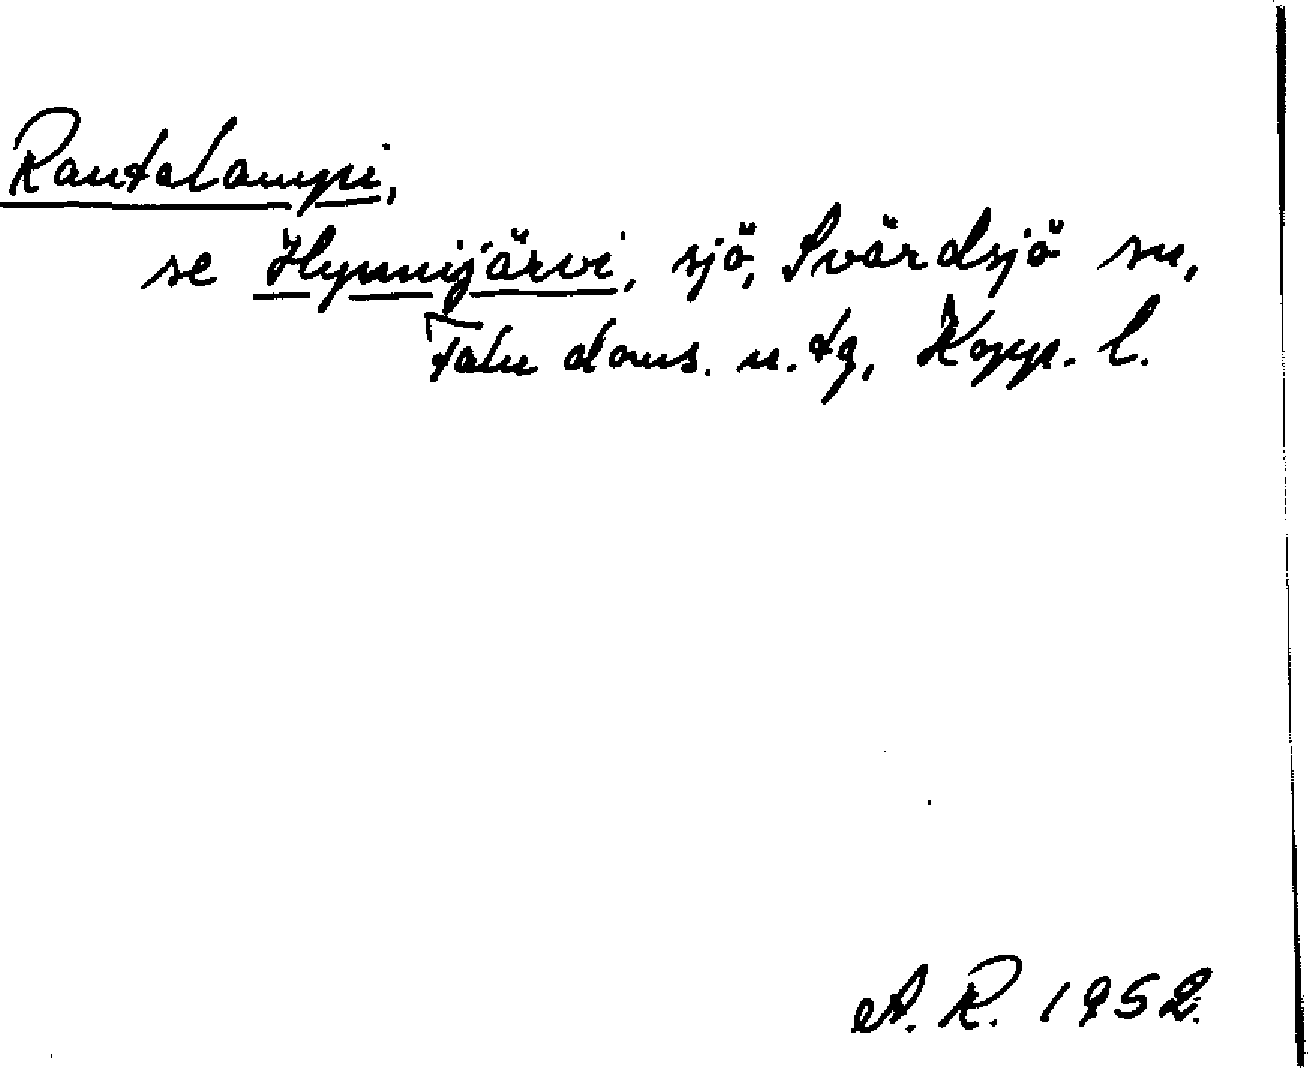 Rautalampi,
se Hynnijärvi, sjö, Svärdsjö sn,
Falu doms. n. tg, Kopp. l.
A. R. 1952.